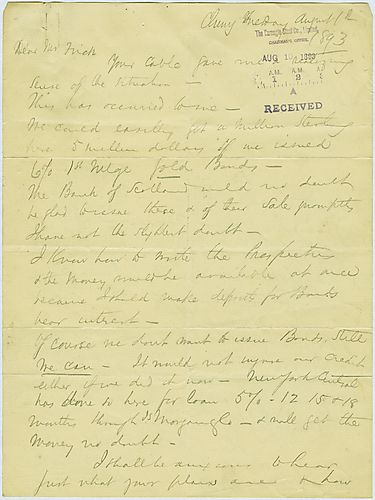 Cluny Tuesday August 1st
1893
The Carnegie Steel Co., Limited,
CHAIRMAN'S OFFICE.
AUG 10 1893
A.M. A.M.
1 2
A
RECEIVED
Dear Mr Frick
Your Cable gave me a
sense of the situation —
This has occurred to me —
We could easily get a million Sterling
here 5 million dollars if we issued
6% 1st Mtge Gold Bonds —
The Bank of Scotland would no doubt
be glad to issue these & of their Sale promptly
I have not the slightest doubt —
I know how to write the Prospectus
& the money would be available at once
because I should make deposit for Bonds
bear interest —
Of course we don't want to issue Bonds, still
we can — It would not injure our credit
either if we did it now — New York Central
has done so here for loan 5% - 12 15 & 18
months through JS Morgan & Co — & will get the
money no doubt —
I shall be anxious to hear
just what your plans are & how